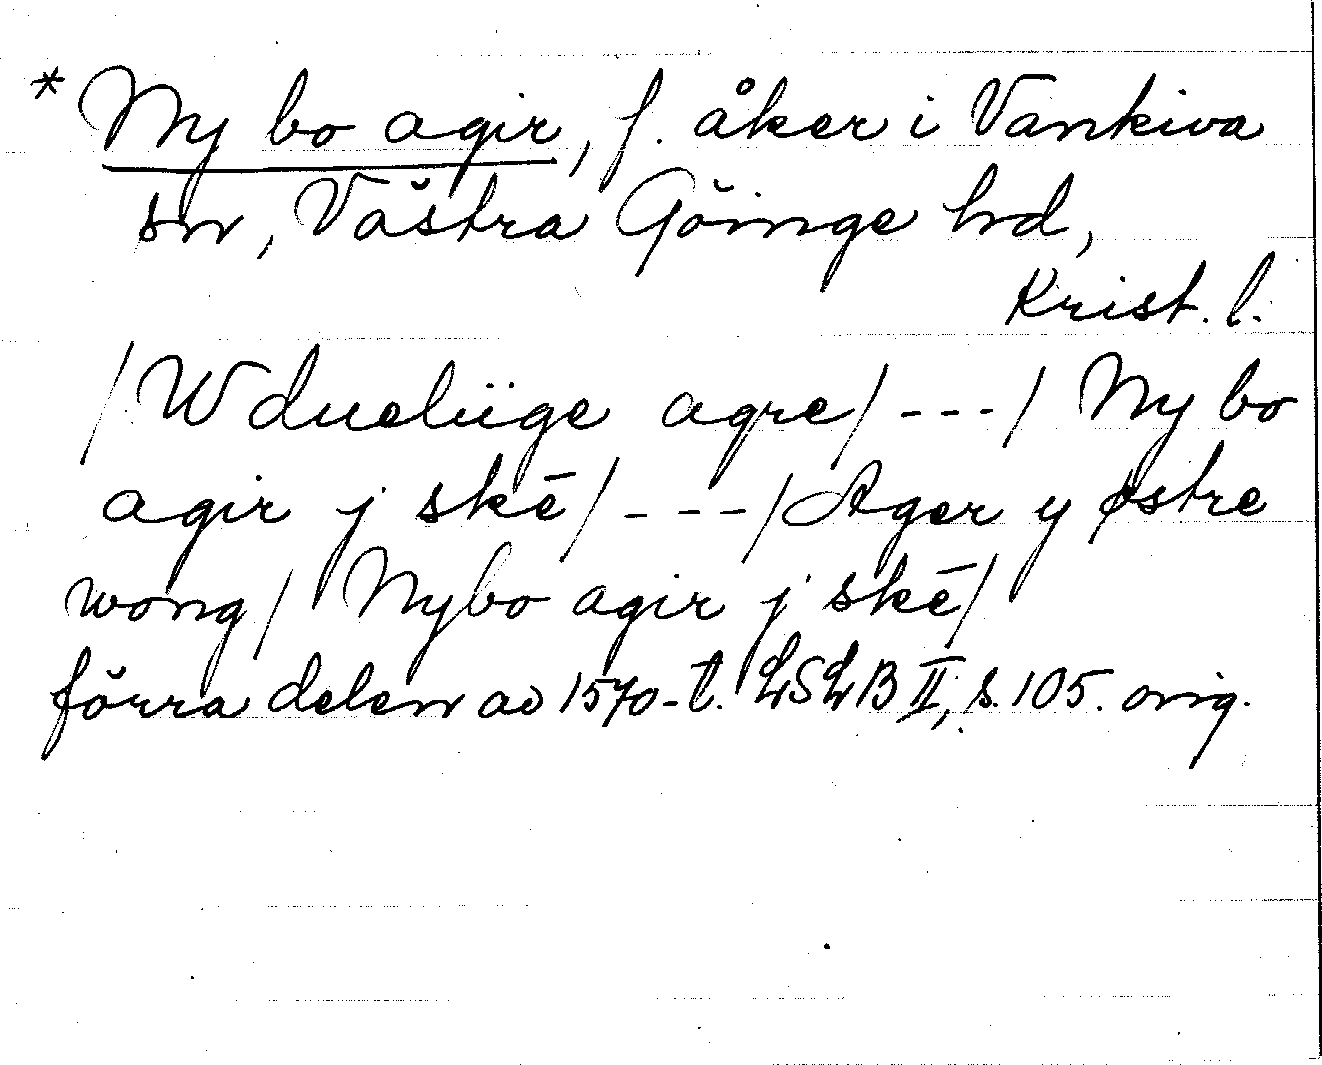 * Ny bo agir, f. åker i Vankiva
sn, Västra Göinge hd,
Krist. l.
/W dueliige agre/ --- / Ny bo
agir j skē/ --- /Ager y østre
wong/ Nybo agir j skē/
förra delen av 1570-t. LSLB II, s. 105. orig.